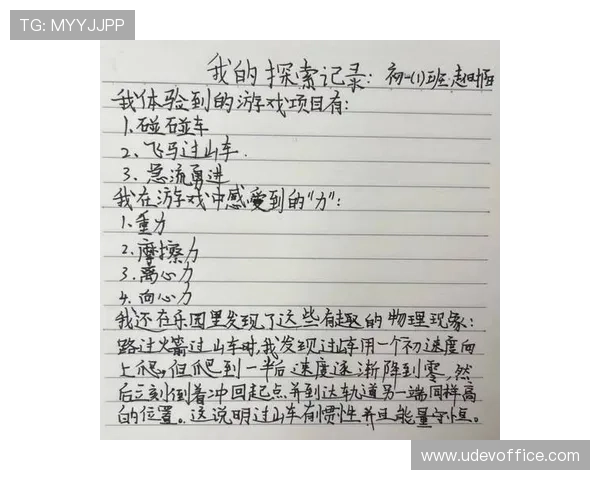 TG: MYYJJPP
我的探索记录: 初一(1)班 赵
我体验到的游戏项目有:
1、碰碰车
2、飞马过山车.
3、急流勇进
我在游戏中感受到的"力":
1、重力
2、摩擦力
3、离心力
4、向心力
我还在乐园里发现了这些有趣的物理现象:
路过火箭过山车时,我发现过山车用一个初速度向
上爬,但爬到一半后速度逐渐降到零,然
后立刻倒着冲回起点并到达轨道另一端同样高
的位置。这说明过山车有惯性并且能量守恒。
https://www.udevoffice.com/